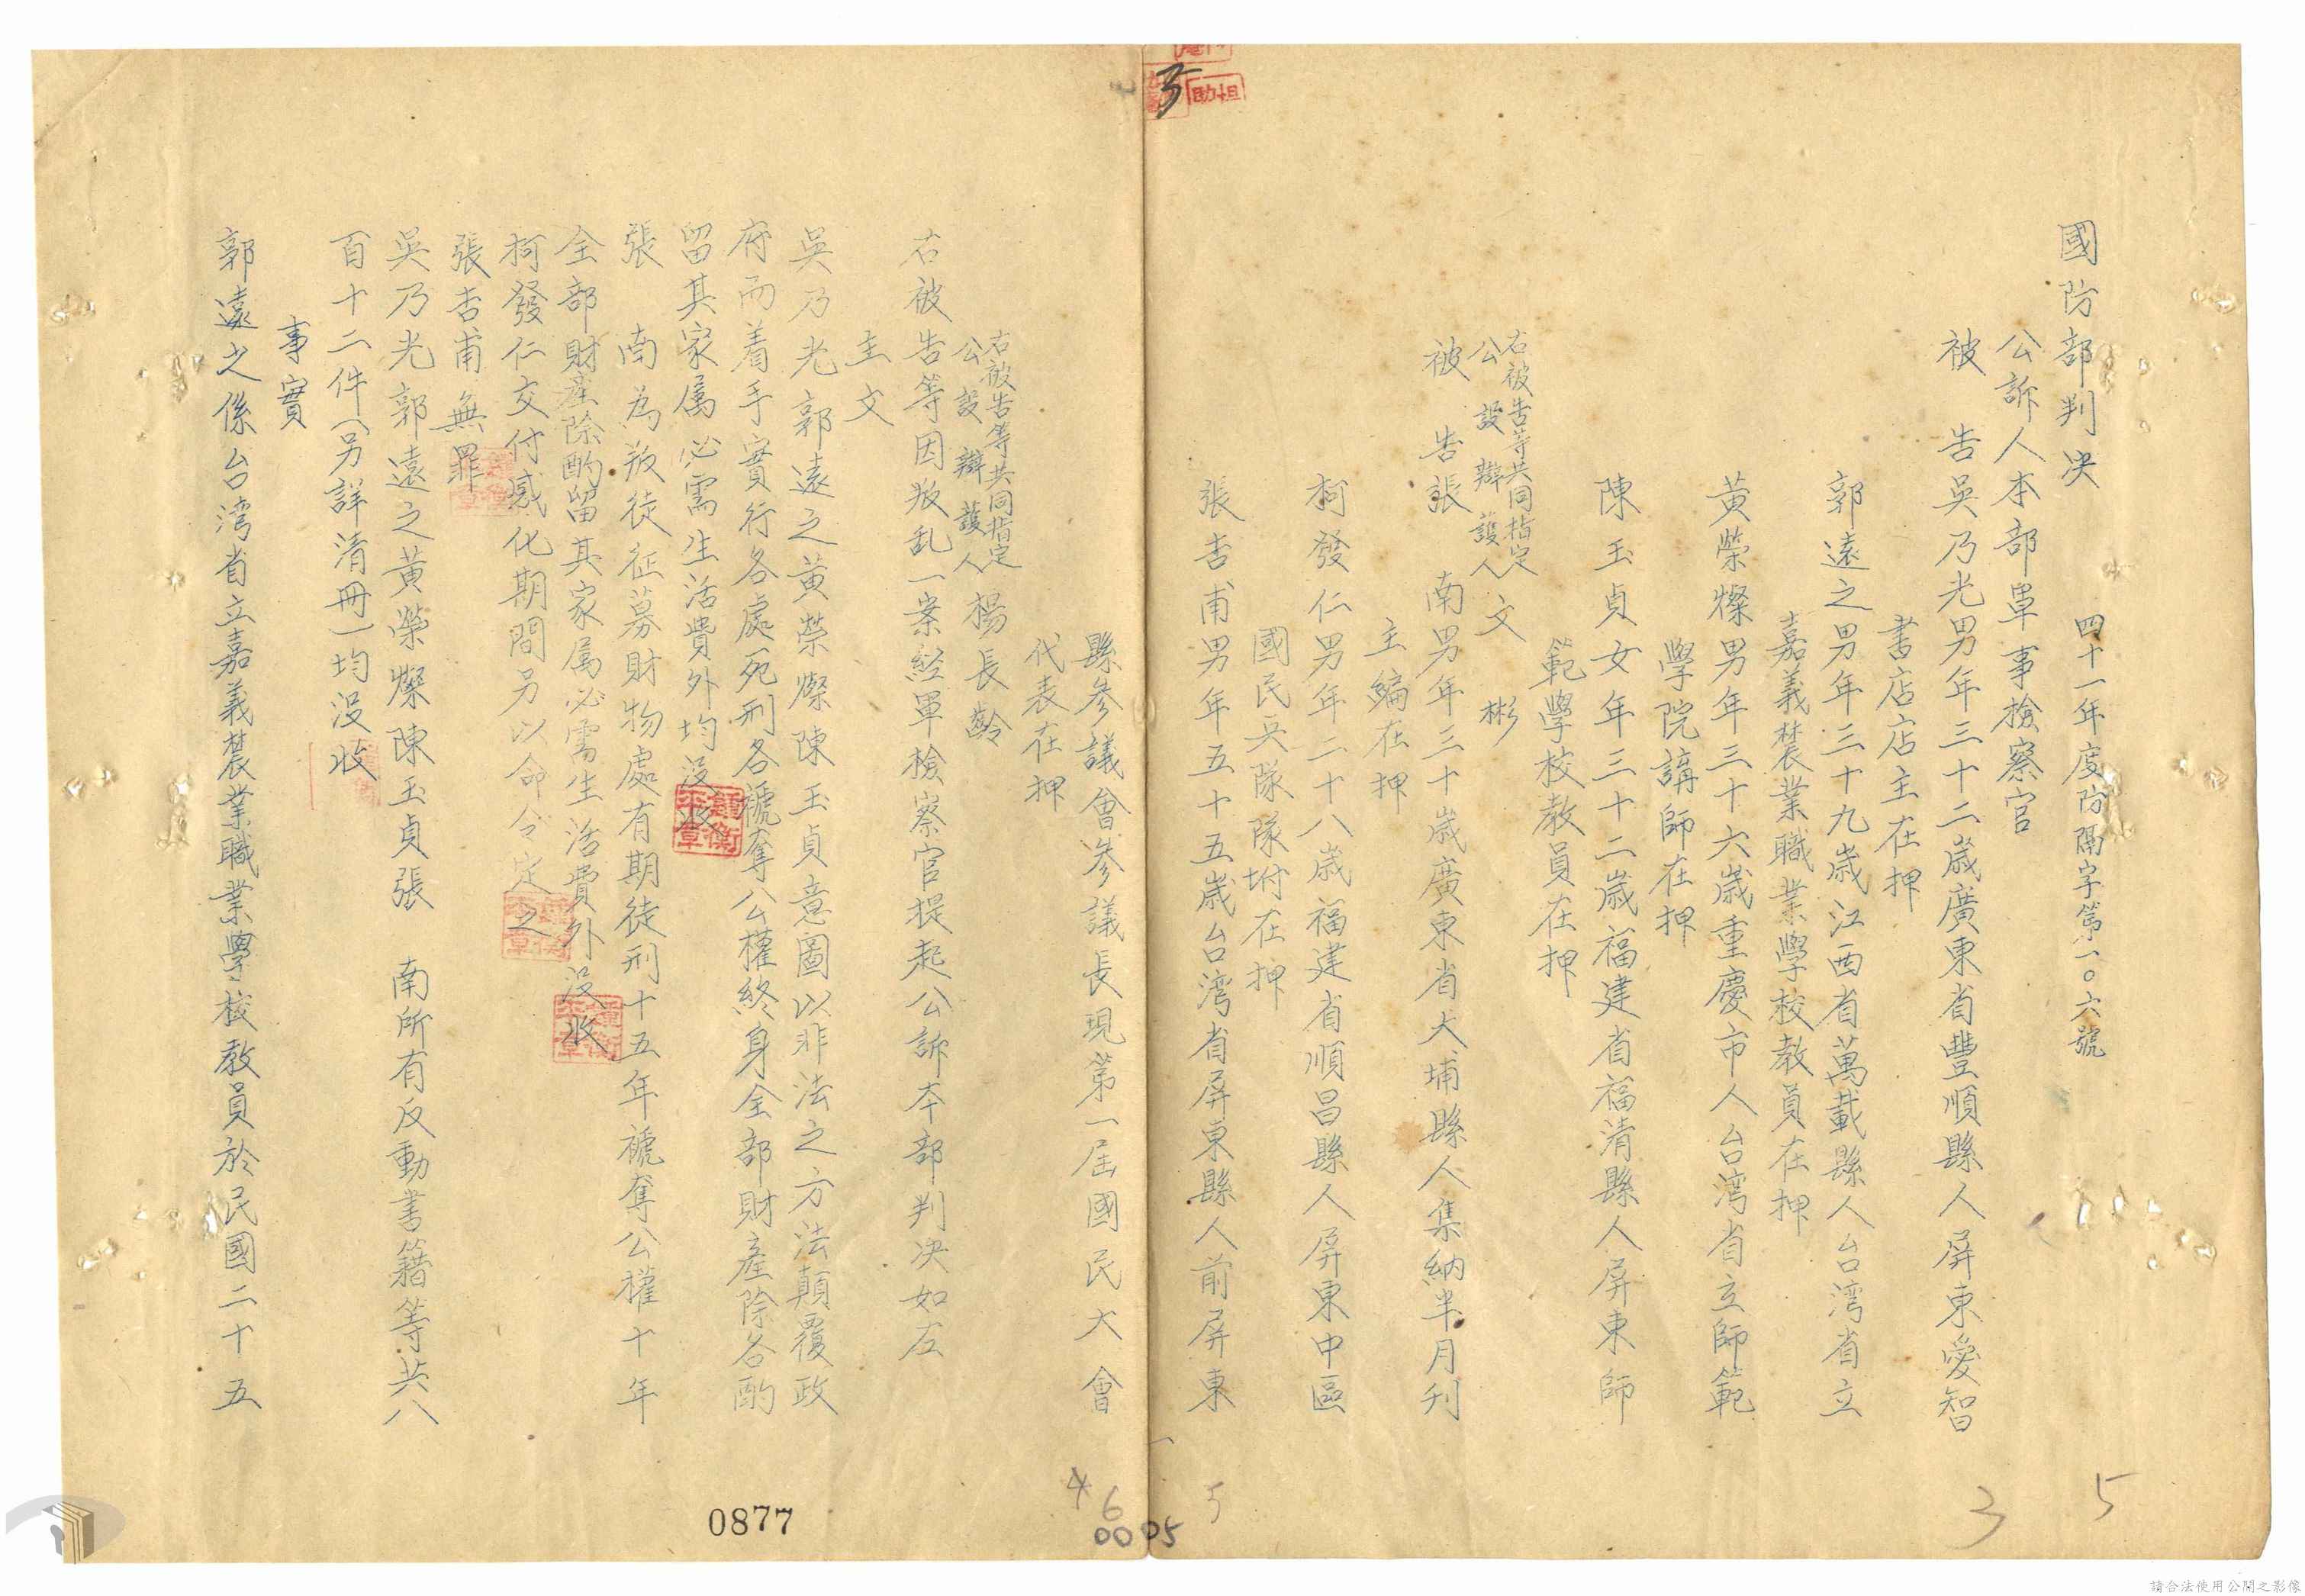 國防部判决
四十一年度防隔字第一〇六號
公訴人本部軍事檢察官
被　告吳乃光男年三十二歲廣東省豐順縣人屏東愛智
書店店主在押
郭遠之男年三十九歲江西省萬載縣人台灣省立
嘉義農業職業學校教員在押
黃榮燦男年三十六歲重慶市人台灣省立師範
學院講師在押
陳玉貞女年三十二歲福建省福清縣人屏東師
範學校教員在押
右被告等共同指定
公設辯護人文　彬
被　告張　南男年三十歲廣東省大埔縣人集納半月刊
主編在押
柯發仁男年二十八歲福建省順昌縣人屏東中區
國民兵隊隊坿在押
張吉甫男年五十五歲台灣省屏東縣人前屏東
縣參議會參議長現第一屆國民大會
代表在押
右被告等共同指定
公設辯護人楊長齡
右被告等因叛乱一案經軍檢察官提起公訴本部判决如左
主文
吳乃光郭遠之黃榮燦陳玉貞意圖以非法之方法顛覆政
府而着手實行各處死刑各褫奪公權終身全部財產除各酌
留其家属必需生活費外均没收
張　南為叛徒征募財物處有期徒刑十五年褫奪公權十年
全部財產除酌留其家属必需生活費外没收
柯發仁交付感化期間另以命令定之
張吉甫無罪
吳乃光郭遠之黃榮燦陳玉貞張　南所有反動書籍等共八
百十二件（另詳清冊）均没收
事實
郭遠之係台灣省立嘉義農業職業學校教員於民國二十五
0877
4
6
0005
5
3
5
請合法使用公開之影像